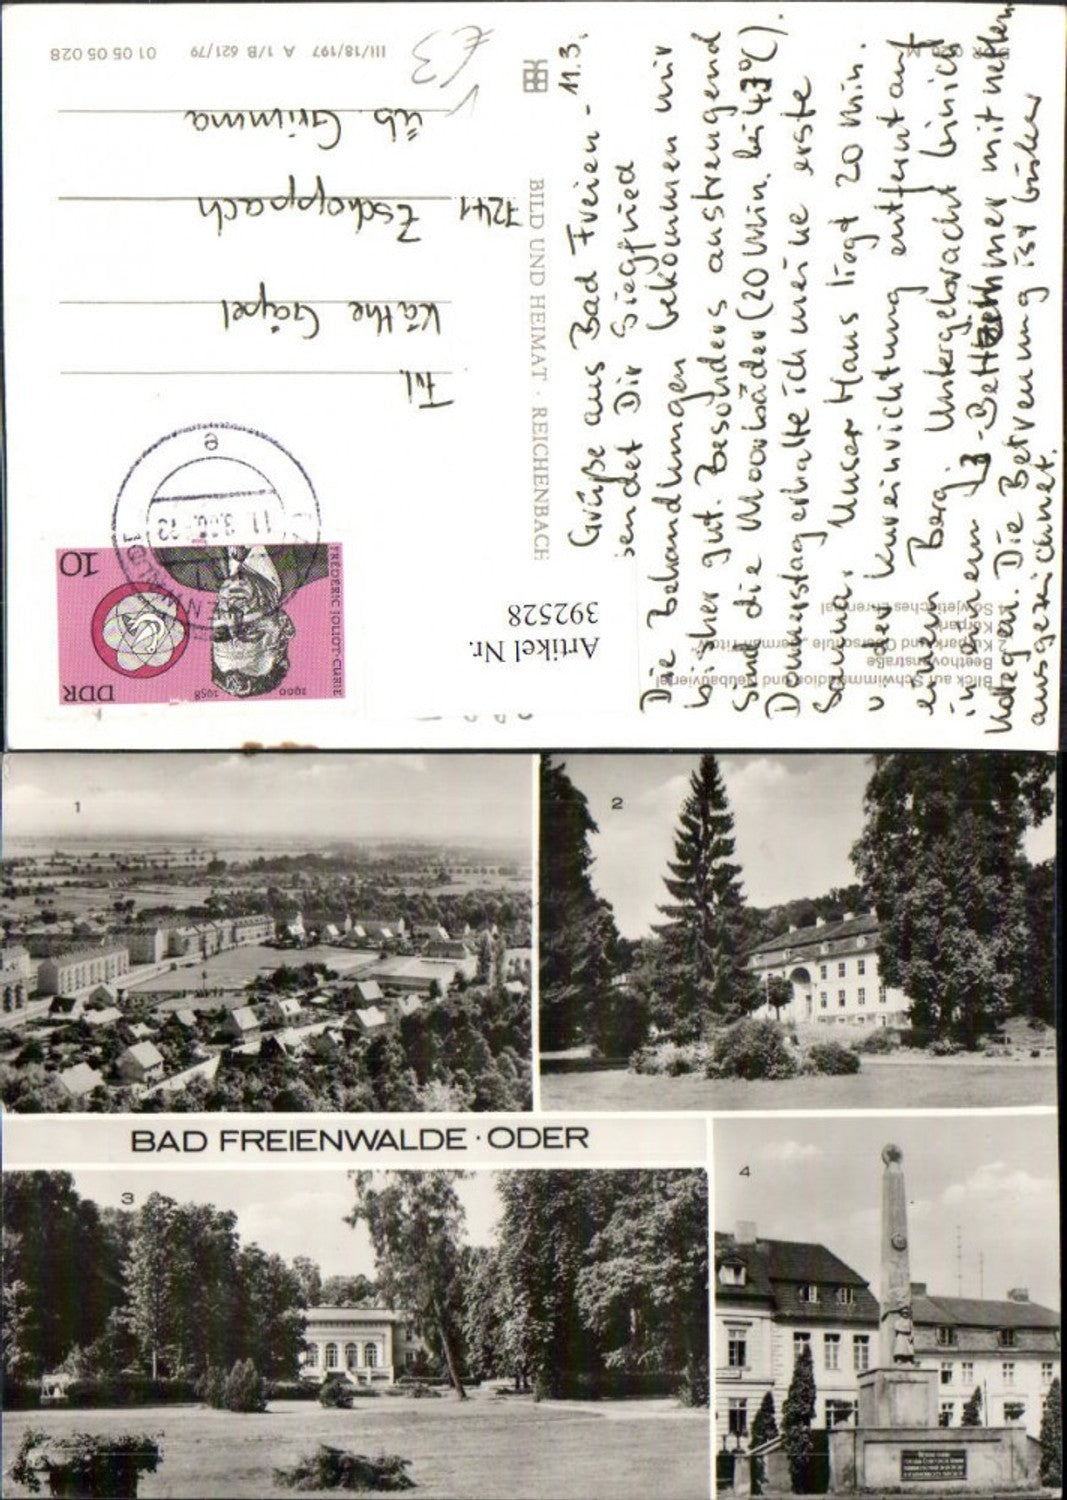 11.3.
Grüße aus Bad Freien-
sendet Dir Siegfried
Die Behandlungen bekommen mir
bisher gut. Besonders anstrengend
sind die Moorbäder (20 Min. bei 43°C).
Donnerstag erhalte ich meine erste
Sauna. Unser Haus liegt 20 Min.
v. der Kureinrichtung entfernt auf
einem Berg. Untergebracht bin ich
in einem 3-Bettzimmer mit netten
Kollegen. Die Betreuung ist bisher
ausgezeichnet.
Frl.
Käthe Göpel
7241 Zschoppach
üb. Grimma
BILD UND HEIMAT · REICHENBACH
III/18/197 A 1/B 621/79 01 05 05 028
Blick auf Schwimmstadion und Neubauviertel
Beethovenstraße
2 Kurpark und Oberschule
Kurpark
4 Sowjetisches Ehrenmal
€3
10
DDR
FRÉDÉRIC JOLIOT-CURIE
1900 1958
e
Artikel Nr.
392528
1
2
BAD FREIENWALDE · ODER
3
4